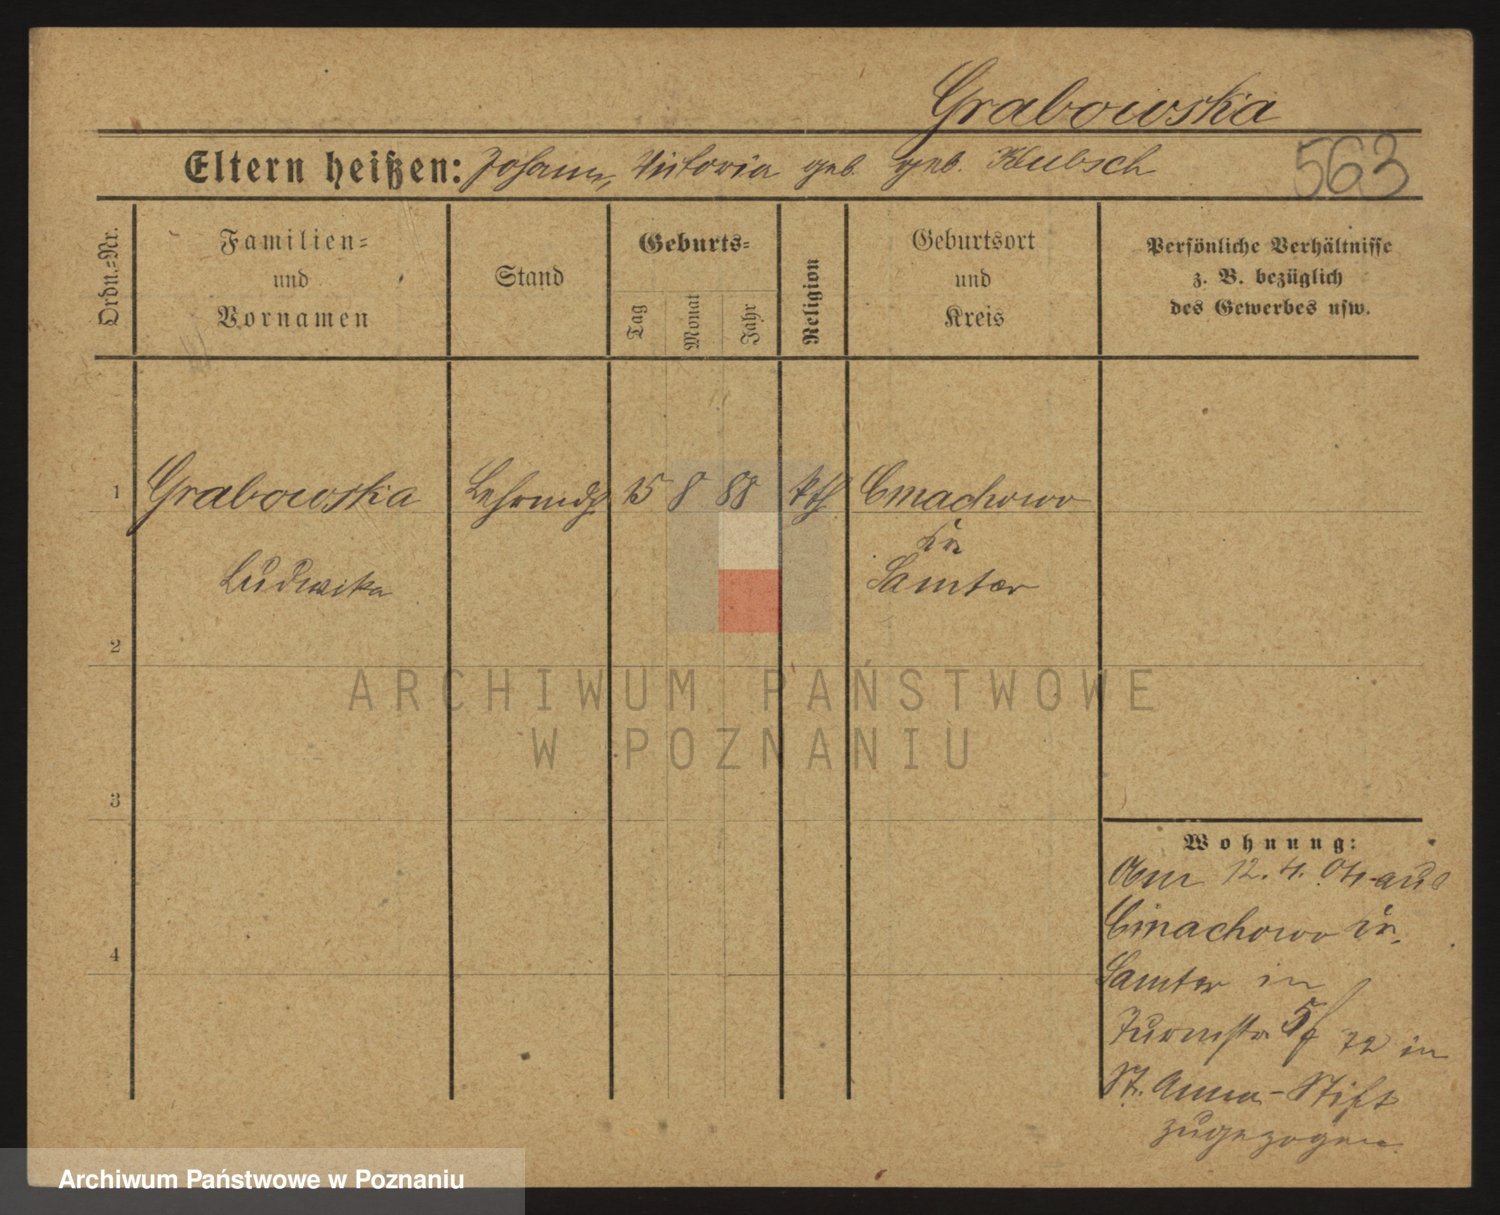 Grabowska
Eltern heißen: Johann, Victoria geb. geb. Hubsch
563
Ordn.-Nr.
Familien-
und
Vornamen
Stand
Geburts-
Tag
Monat
Jahr
Religion
Geburtsort
und
Kreis
Persönliche Verhältnisse
z. B. bezüglich
des Gewerbes usw.
1 Grabowska Lehrmdch 15 8 88 kth Cmachowo
Kr
Ludwika
Samter
2
ARCHIWUM PAŃSTWOWE
W POZNANIU
3
Wohnung:
Am 12.4.04 aus
Cmachowo Kr.
Samter in
Turmstr. 5 72 in
St. Anna-Stift
4
zugezogen.
Archiwum Państwowe w Poznaniu